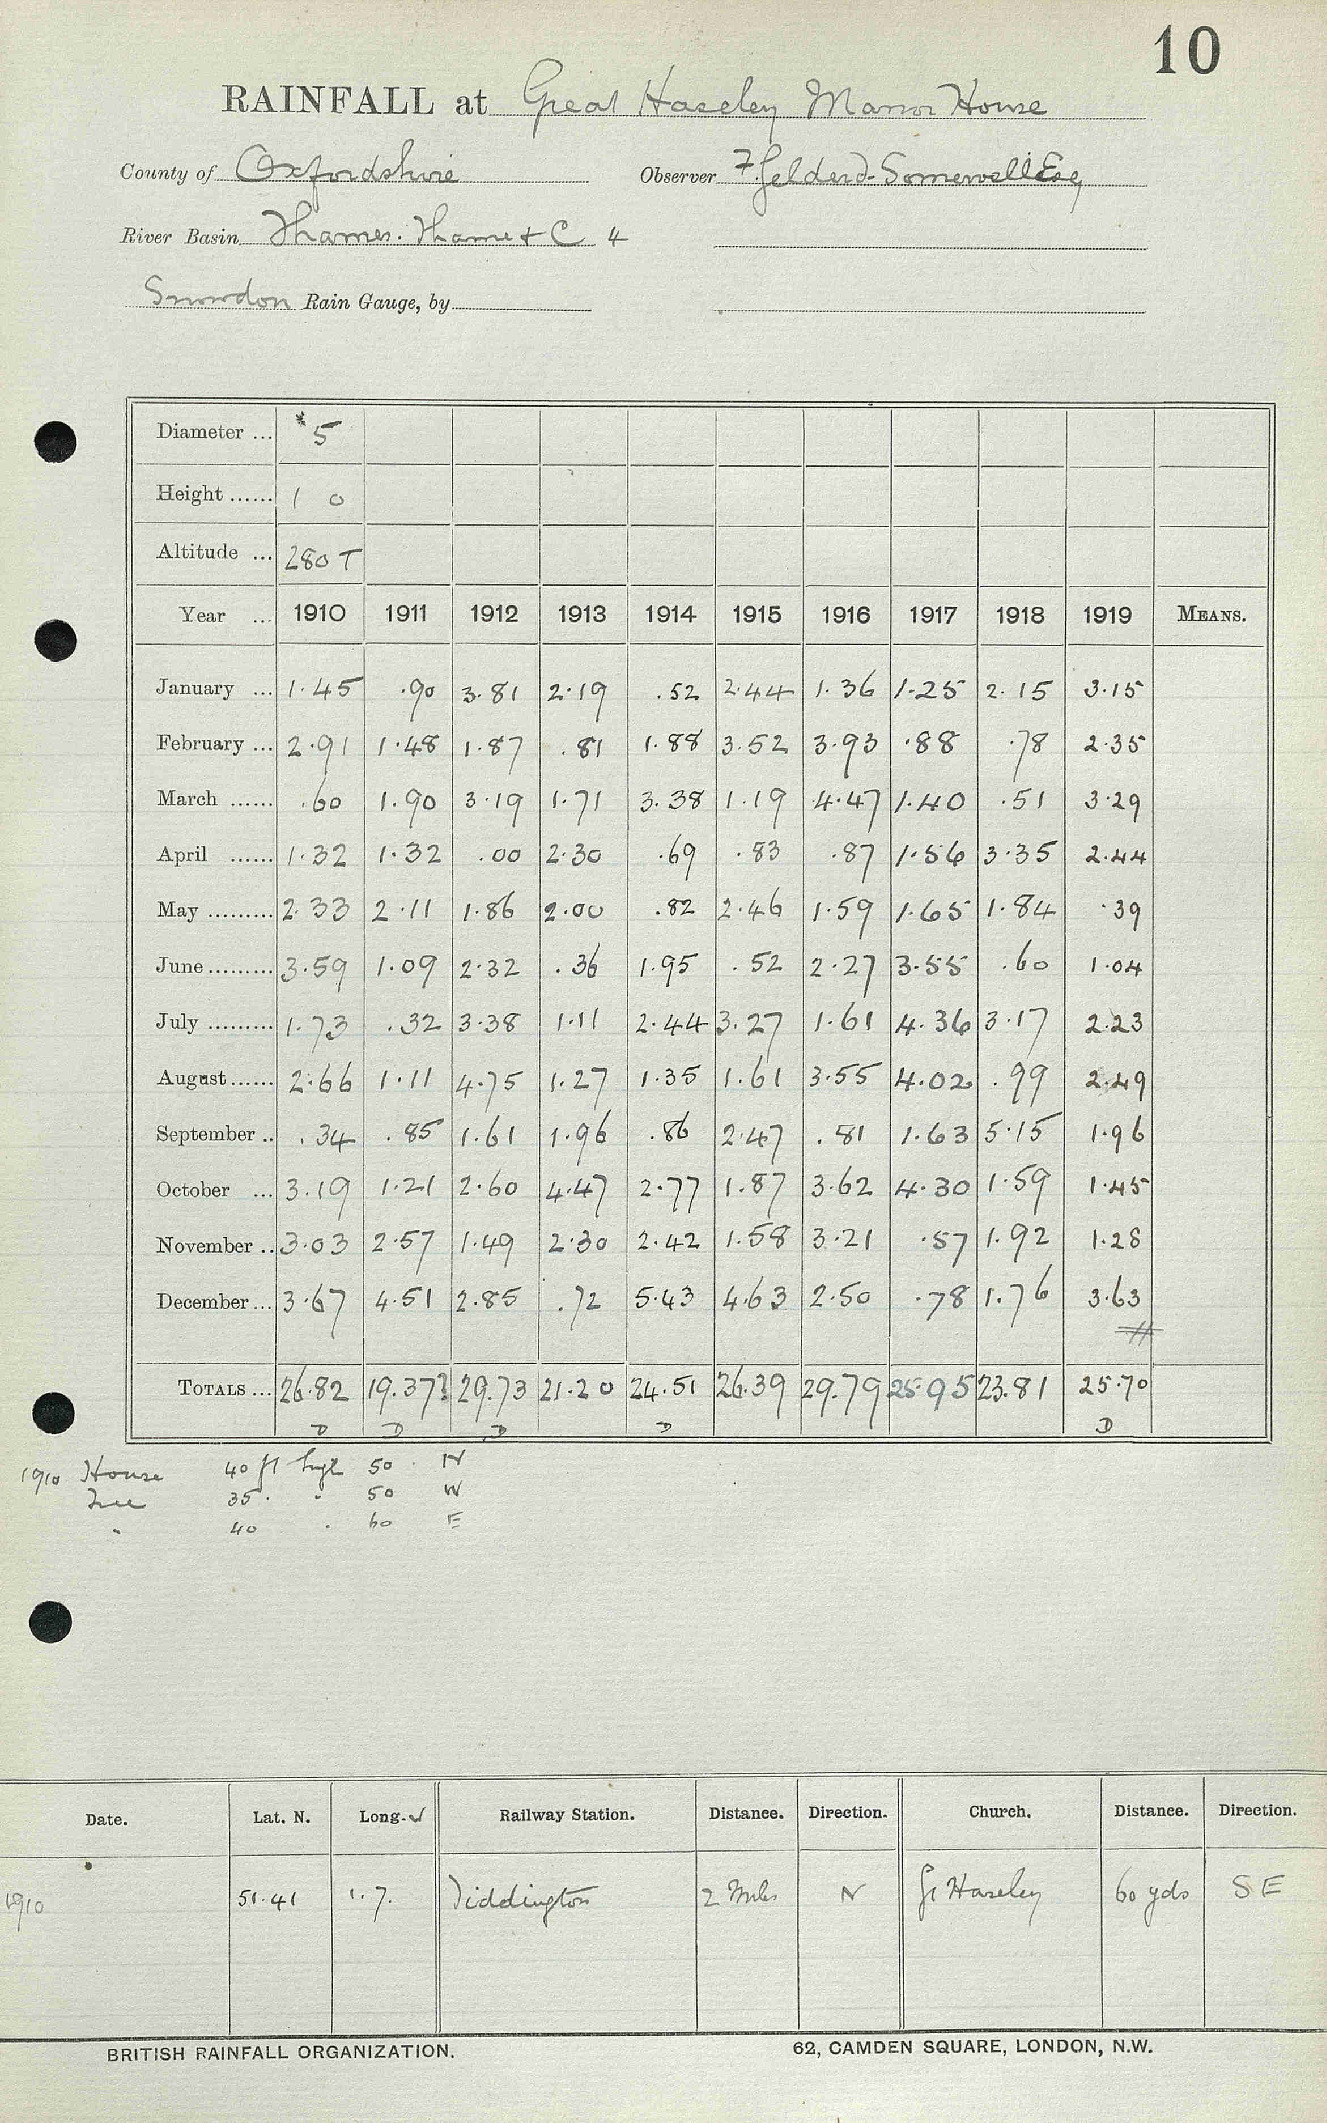 10
RAINFALL at Great Haseley Manor House
County of Oxfordshire Observer F. Gelderd-Somervell Esq
River Basin Thames. Thame + C 4
Snowdon Rain Gauge, by
Diameter ... 5
Height ...... 1 0
Altitude ... 280 T
Year ... 1910 1911 1912 1913 1914 1915 1916 1917 1918 1919 MEANS.
January ... 1.45 .90 3.81 2.19 .52 2.44 1.36 1.25 2.15 3.15
February ... 2.91 1.48 1.87 .81 1.88 3.52 3.93 .88 .78 2.35
March ...... .60 1.90 3.19 1.71 3.38 1.19 4.47 1.40 .51 3.29
April ...... 1.32 1.32 .00 2.30 .69 .83 .87 1.56 3.35 2.44
May ......... 2.33 2.11 1.86 2.00 .82 2.46 1.59 1.65 1.84 .39
June ......... 3.59 1.09 2.32 .36 1.95 .52 2.27 3.55 .60 1.04
July ......... 1.73 .32 3.38 1.11 2.44 3.27 1.61 4.36 3.17 2.23
August ...... 2.66 1.11 4.75 1.27 1.35 1.61 3.55 4.02 .99 2.49
September .. .34 .85 1.61 1.96 .86 2.47 .81 1.63 5.15 1.96
October ... 3.19 1.21 2.60 4.47 2.77 1.87 3.62 4.30 1.59 1.45
November .. 3.03 2.57 1.49 2.30 2.42 1.58 3.21 .57 1.92 1.28
December ... 3.67 4.51 2.85 .72 5.43 4.63 2.50 .78 1.76 3.63
TOTALS ... 26.82 19.37? 29.73 21.20 24.51 26.39 29.79 25.95 23.81 25.70
D D D D D
1910 House 40 ft high 50 N
Tree 35 . . 50 W
" 40 . 60 E
Date. Lat. N. Long. W Railway Station. Distance. Direction. Church. Distance. Direction.
1910 51.41 1.7. Tiddington 2 Miles N Gt Haseley 60 yds SE
BRITISH RAINFALL ORGANIZATION. 62, CAMDEN SQUARE, LONDON, N.W.